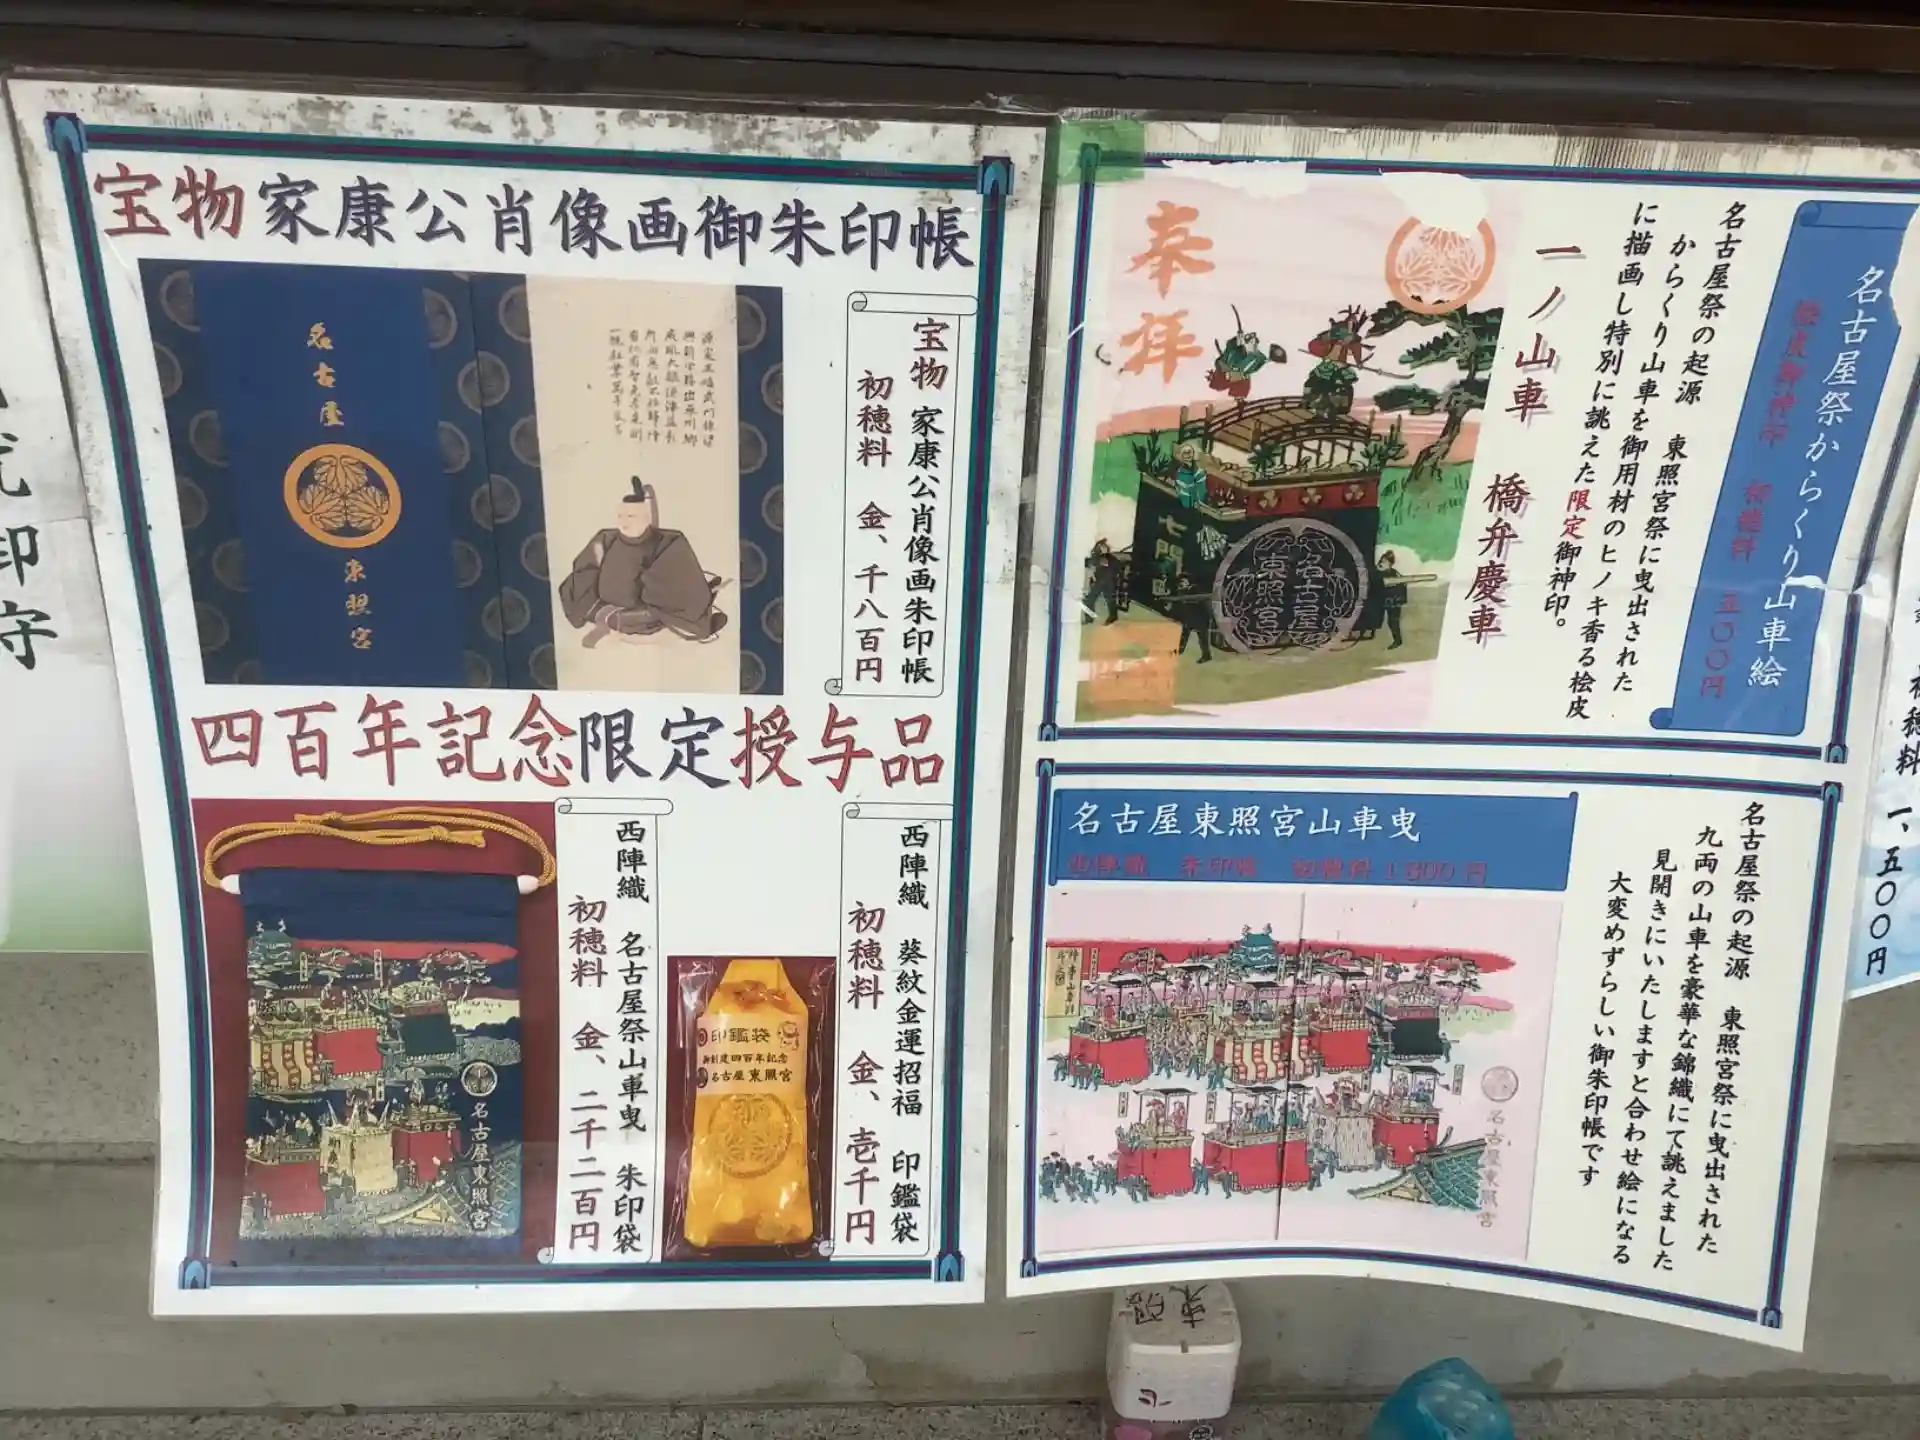 宝物家康公肖像画御朱印帳
名古屋
東照宮
宝物 家康公肖像画朱印帳
初穂料 金、千八百円
四百年記念限定授与品
名古屋東照宮
西陣織 名古屋祭山車曳 朱印袋
初穂料 金、二千二百円
印鑑袋
御創建四百年記念
名古屋東照宮
西陣織 葵紋金運招福 印鑑袋
初穂料 金、壱千円
名古屋祭からくり山車絵
桧皮御神印 初穂料 五〇〇円
名古屋祭の起源 東照宮祭に曳出された
からくり山車を御用材のヒノキ香る桧皮
に描画し特別に誂えた限定御神印。
一ノ山車 橋弁慶車
奉拝
七間町
名古屋
東照宮
名古屋東照宮山車曳
西陣織 朱印帳 初穂料1800円
名古屋祭の起源 東照宮祭に曳出された
九両の山車を豪華な錦織にて誂えました
見開きにいたしますと合わせ絵になる
大変めずらしい御朱印帳です
名古屋東照宮
印守
穂料 一、五〇〇円